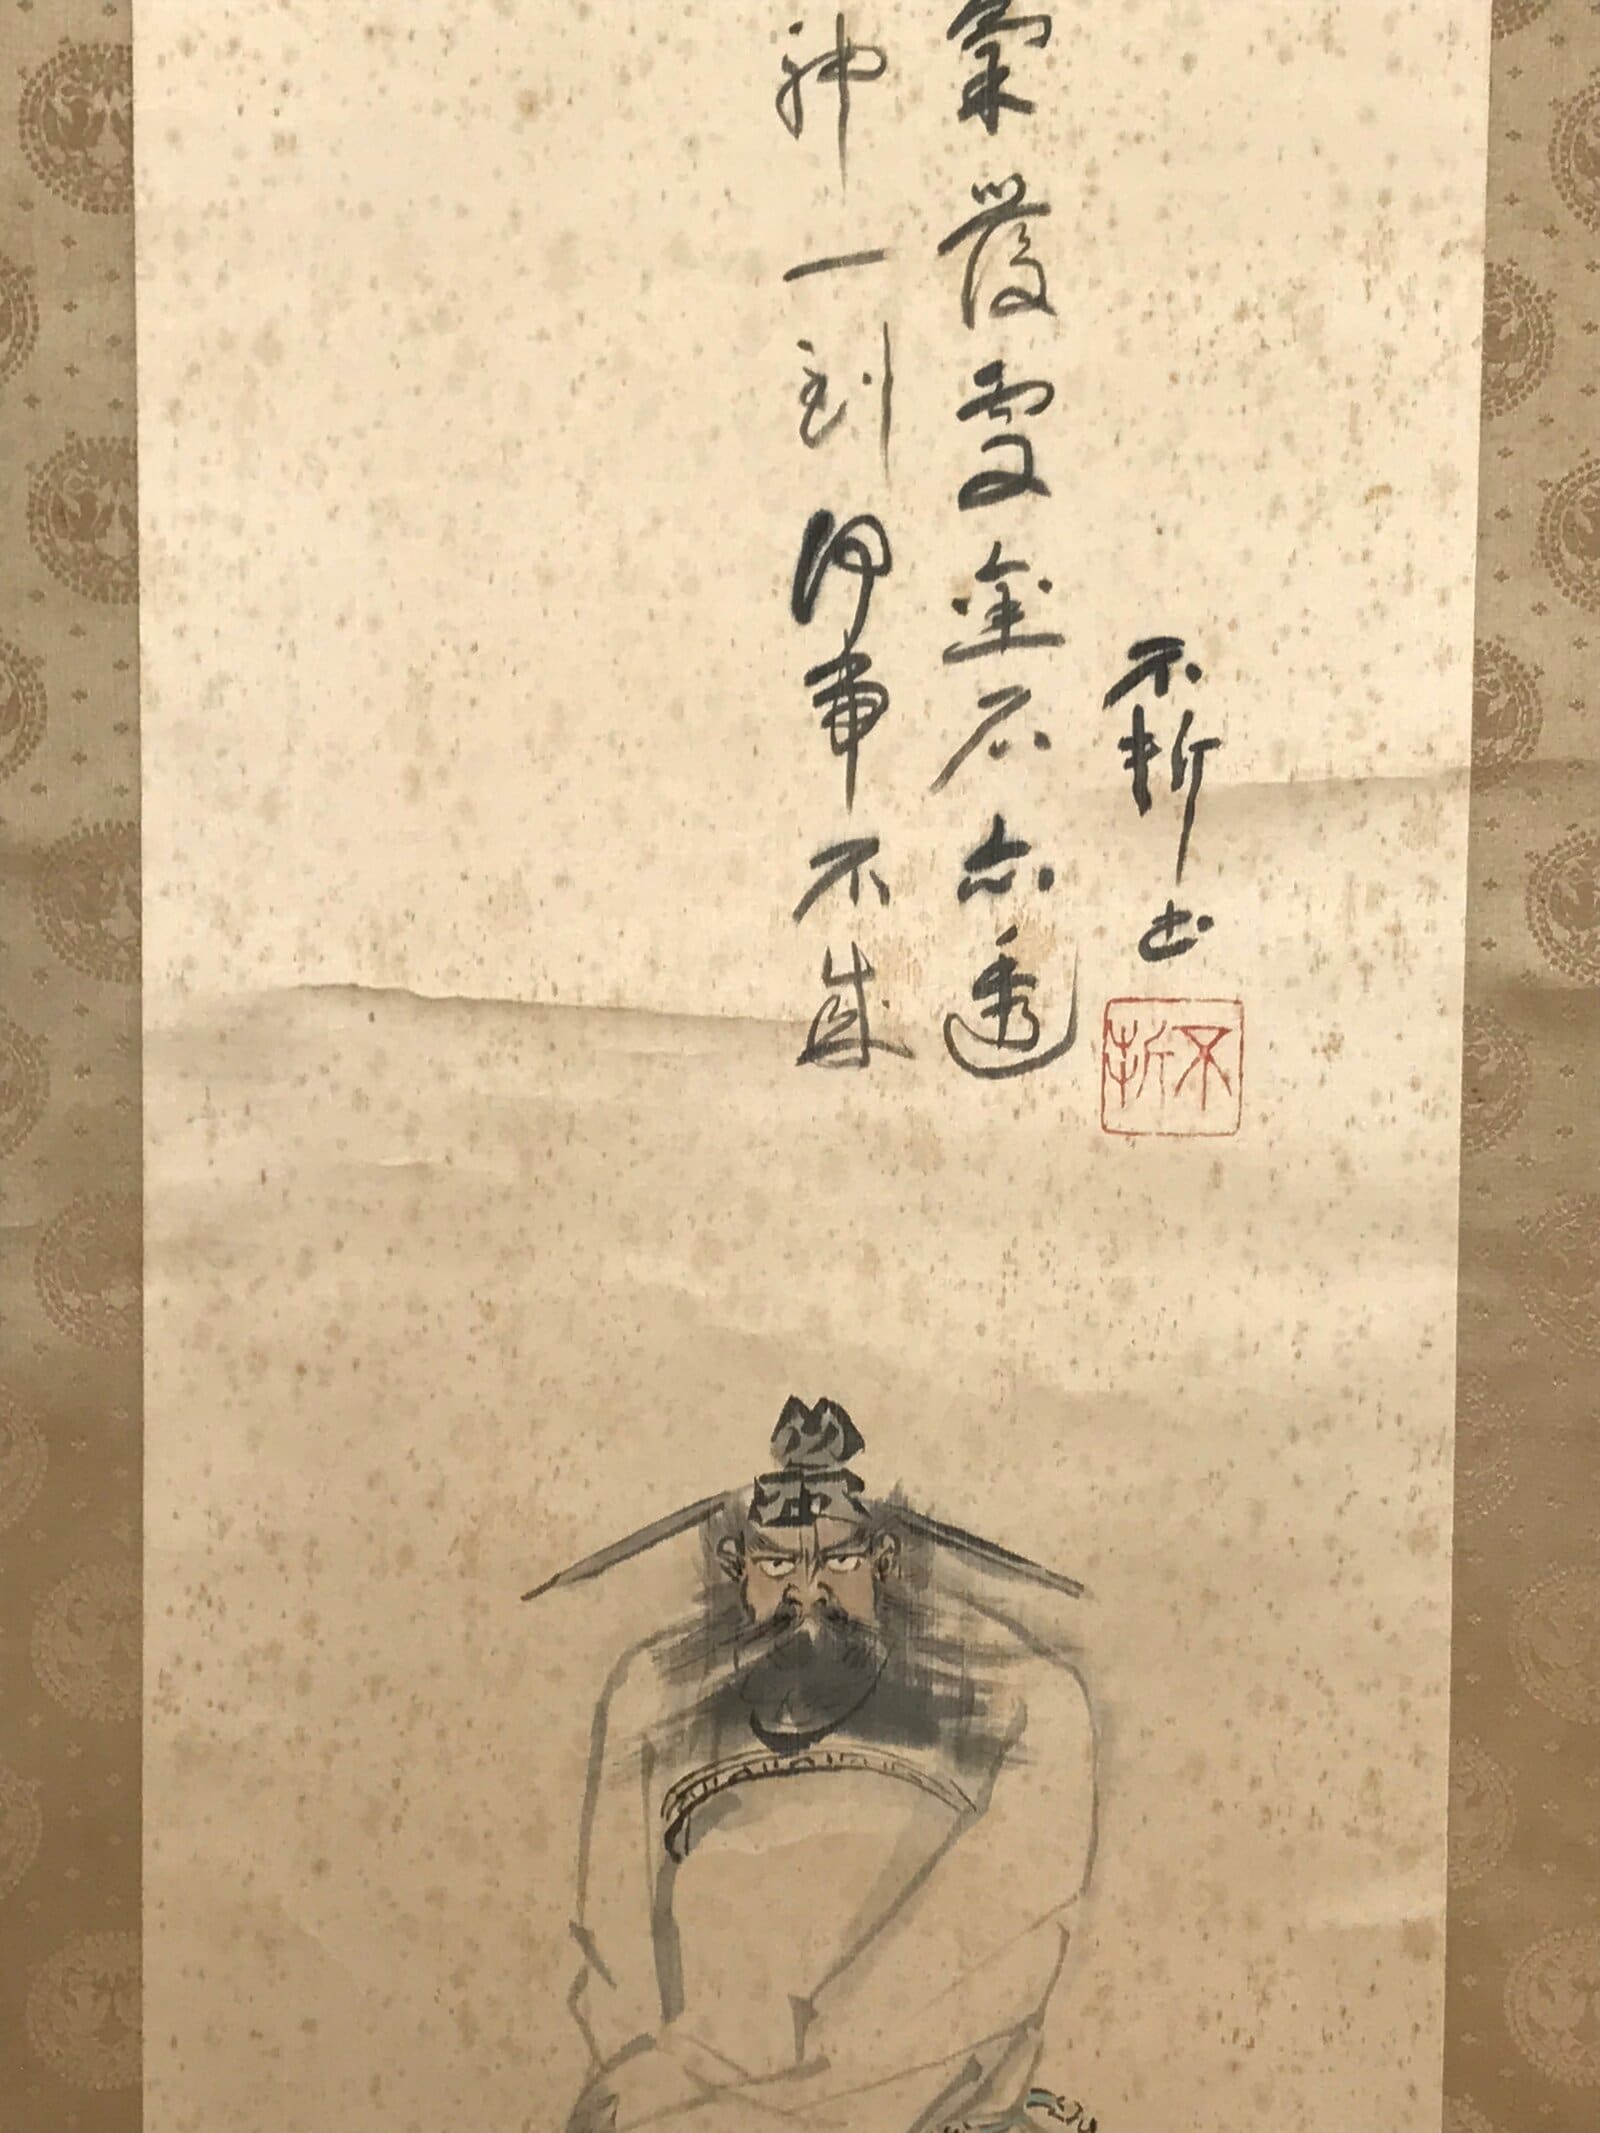 氣發處金石亦透
神一到何事不成
不折書
不折